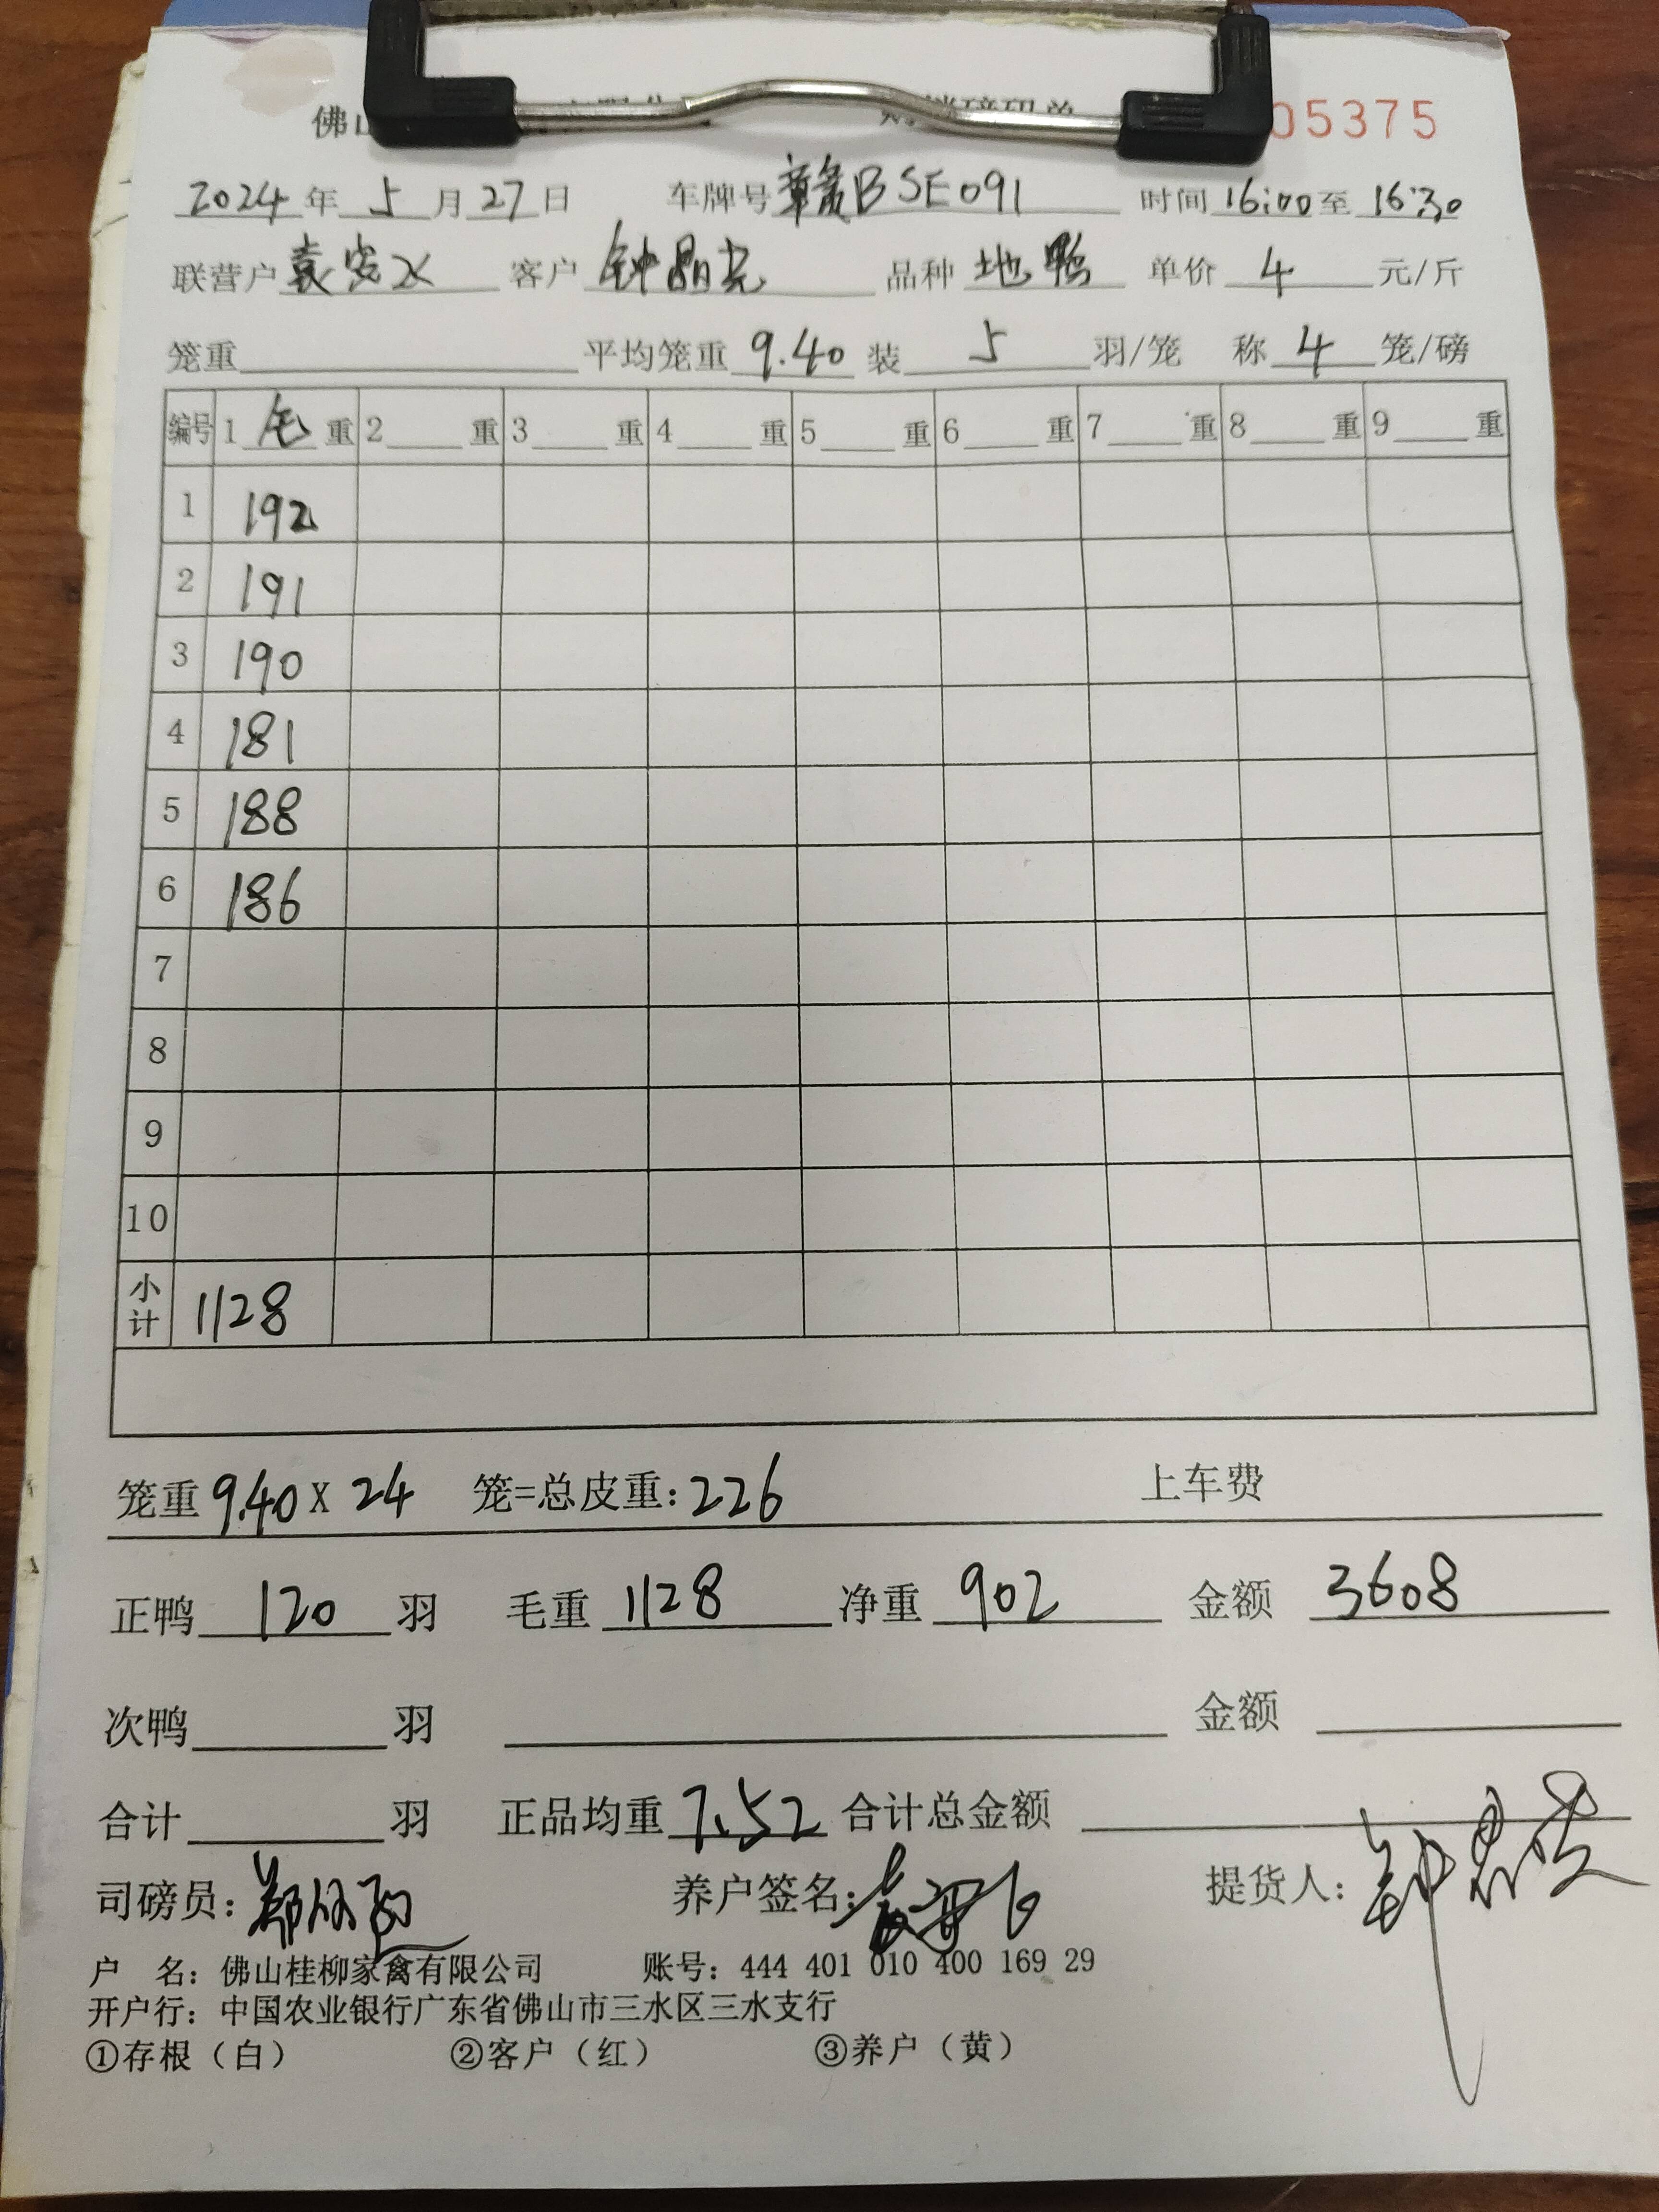 佛山
05375
2024年 5月27日 车牌号 赣BSE091 时间 16:00至 16:30
联营户 客户 钟晶 品种 地鸭 单价 4 元/斤
笼重 平均笼重 9.40 装 5 羽/笼 称 4 笼/磅
编号 1 毛 重 2 重 3 重 4 重 5 重 6 重 7 重 8 重 9 重
1 192
2 191
3 190
4 181
5 188
6 186
7
8
9
10
小计 1128
笼重 9.40 X 24 笼=总皮重: 226 上车费
正鸭 120 羽 毛重 1128 净重 902 金额 3608
次鸭 羽 金额
合计 羽 正品均重 7.52 合计总金额
司磅员: 养户签名: 提货人:
户 名: 佛山桂柳家禽有限公司 账号: 444 401 010 400 169 29
开户行: 中国农业银行广东省佛山市三水区三水支行
①存根（白） ②客户（红） ③养户（黄）